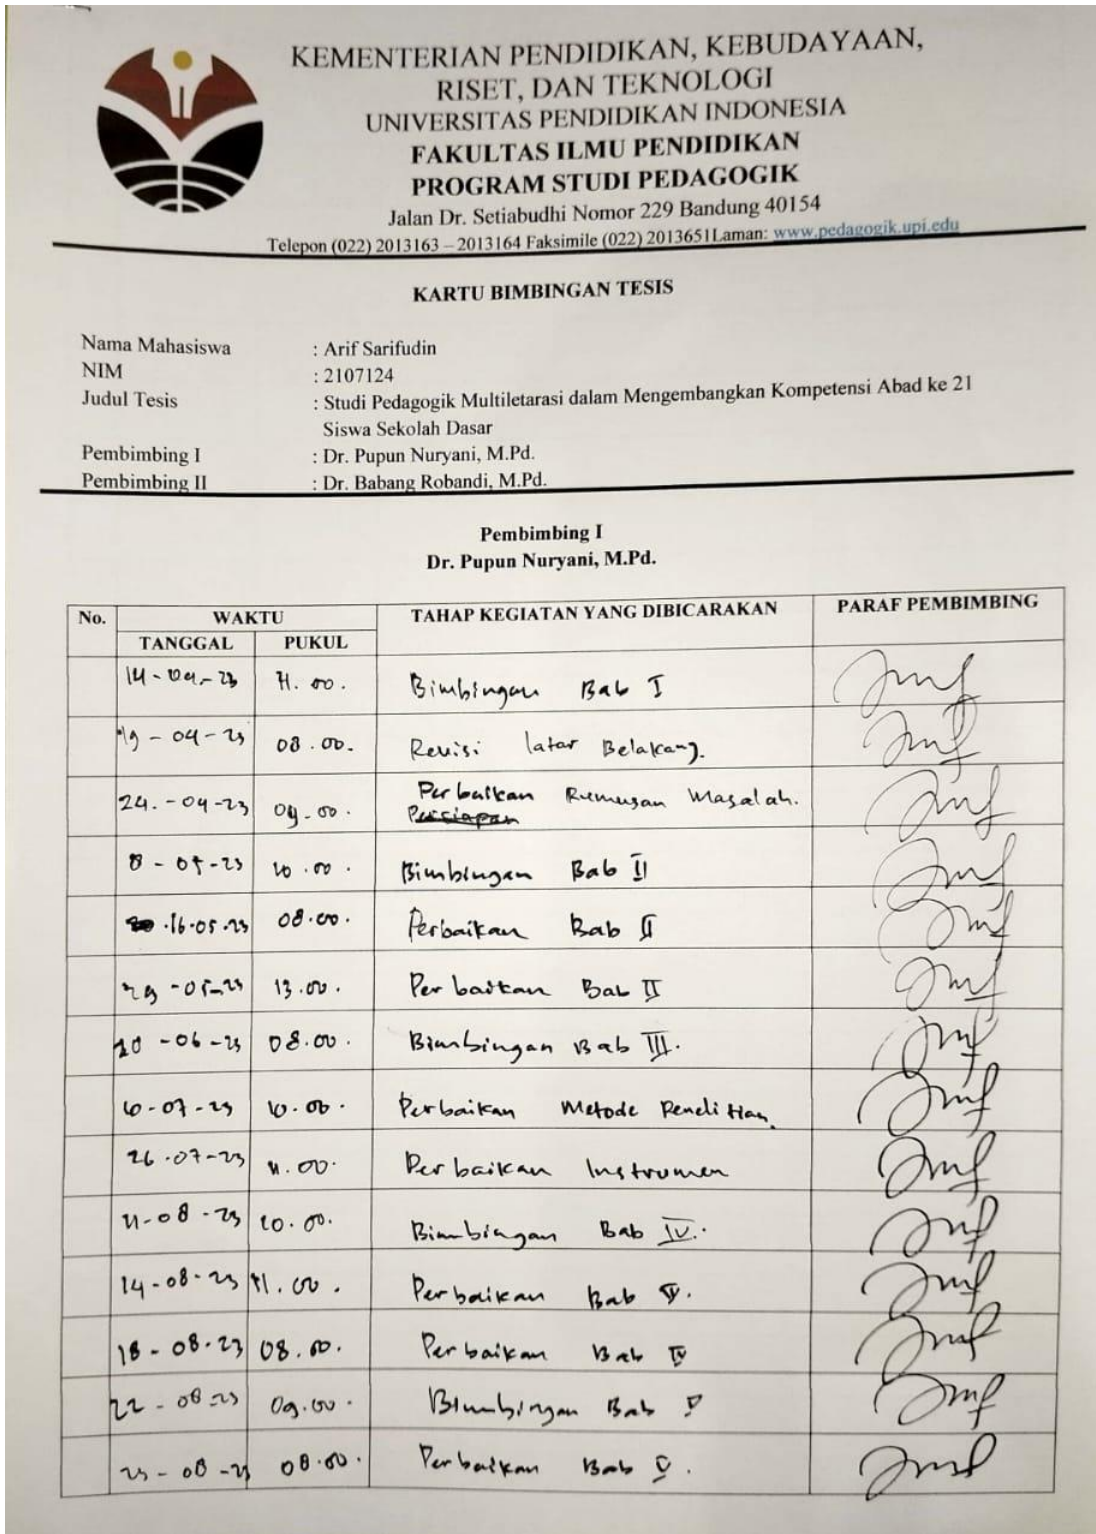 KEMENTERIAN PENDIDIKAN, KEBUDAYAAN,
RISET, DAN TEKNOLOGI
UNIVERSITAS PENDIDIKAN INDONESIA
FAKULTAS ILMU PENDIDIKAN
PROGRAM STUDI PEDAGOGIK
Jalan Dr. Setiabudhi Nomor 229 Bandung 40154
Telepon (022) 2013163 – 2013164 Faksimile (022) 2013651Laman: www.pedagogik.upi.edu
KARTU BIMBINGAN TESIS
Nama Mahasiswa : Arif Sarifudin
NIM : 2107124
Judul Tesis : Studi Pedagogik Multiletarasi dalam Mengembangkan Kompetensi Abad ke 21
Siswa Sekolah Dasar
Pembimbing I : Dr. Pupun Nuryani, M.Pd.
Pembimbing II : Dr. Babang Robandi, M.Pd.
Pembimbing I
Dr. Pupun Nuryani, M.Pd.
No. WAKTU TAHAP KEGIATAN YANG DIBICARAKAN PARAF PEMBIMBING
TANGGAL PUKUL
14-04-23 11.00. Bimbingan Bab I
19-04-23 08.00. Revisi latar Belakang.
24.-04-23 09.00. Perbaikan Rumusan Masalah.
Persiapan
8-05-23 10.00. Bimbingan Bab II
16.05.23 08.00. Perbaikan Bab II
29-05-23 13.00. Perbaikan Bab II
20-06-23 08.00. Bimbingan Bab III.
10.00. Perbaikan Metode Penelitian.
26.07-23 11.00. Perbaikan Instrumen
11-08-23 10.00. Bimbingan Bab IV.
14-08-23 11.00. Perbaikan Bab IV.
18-08-23 08.00. Perbaikan Bab IV
22-08-23 09.00. Bimbingan Bab V
08.00. Perbaikan Bab V.